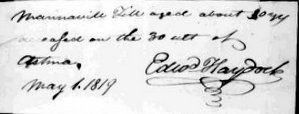 Mannaville Till aged about 50 yr
deceased on the 30 ult of
Asthma.
Edwd Haydock
May 1. 1819